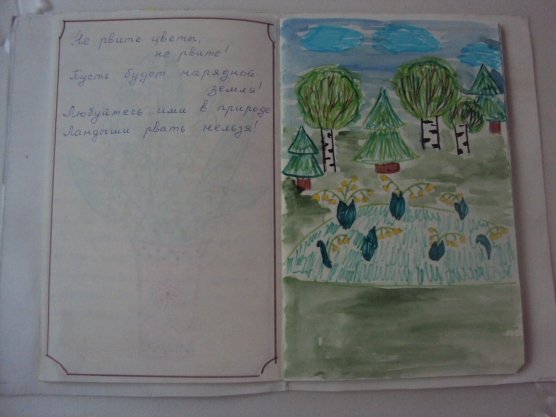 Не рвите цветы,
не рвите!
Пусть будет нарядной
земля!
Любуйтесь ими в природе
Ландыши рвать нельзя!